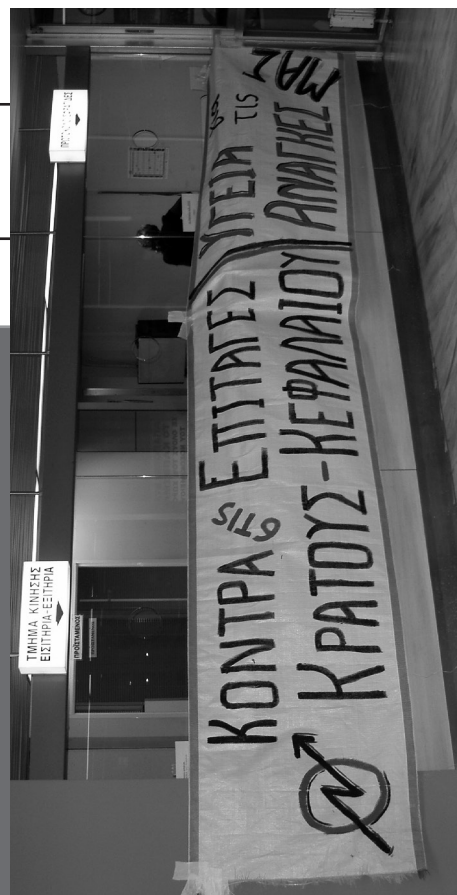 ΤΜΗΜΑ ΚΙΝΗΣΗΣ
ΕΙΣΙΤΗΡΙΑ-ΕΞΙΤΗΡΙΑ
ΠΡΟΪΣΤΑΜΕΝΟΣ
ΚΟΝΤΡΑ στις ΕΠΙΤΑΓΕΣ
ΚΡΑΤΟΥΣ-ΚΕΦΑΛΑΙΟΥ
ΥΓΕΙΑ τις
ΑΝΑΓΚΕΣ ΜΑΣ